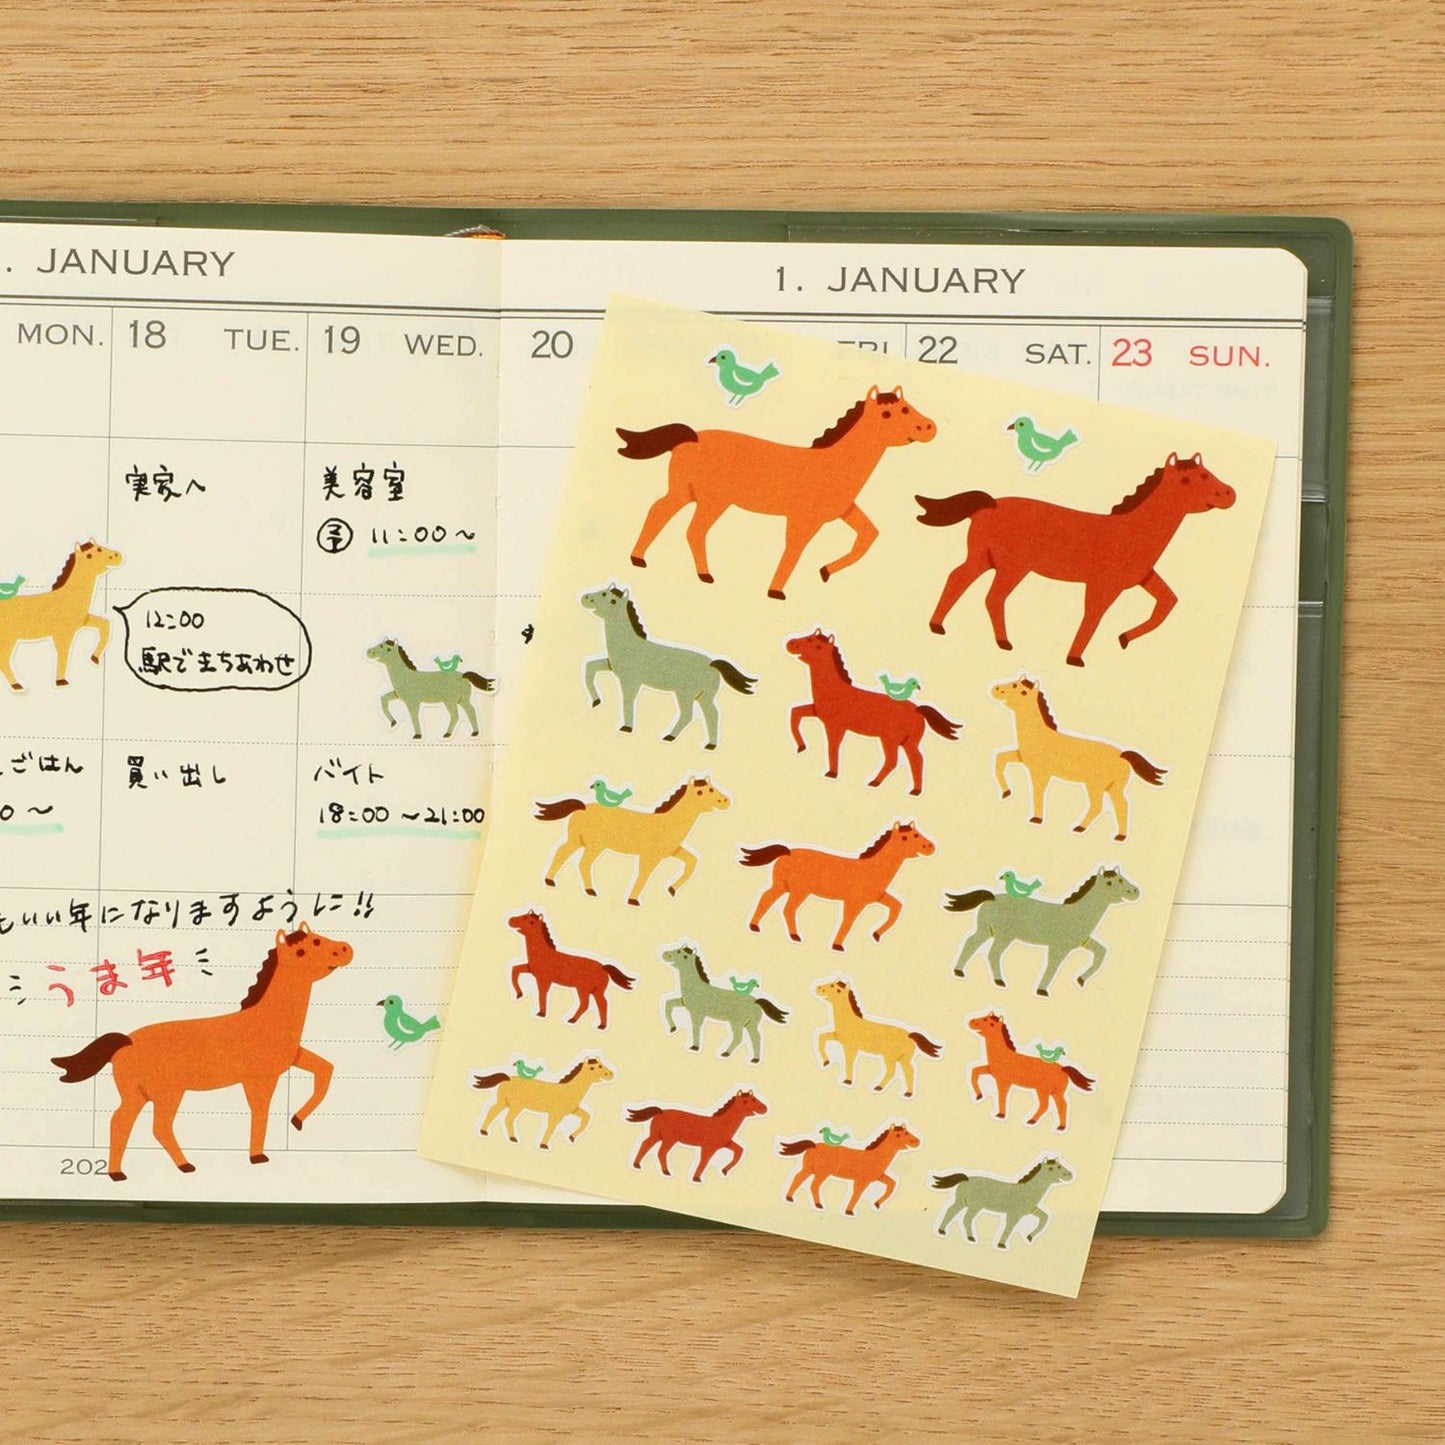 . JANUARY
MON.
18 TUE.
19 WED.
実家へ
美容室
予 11:00〜
12:00
駅でまちあわせ
ごはん
0〜
買い出し
バイト
18:00〜21:00
もいい年になりますように!!
うま年
202
1. JANUARY
20
FRI.
22 SAT.
23 SUN.